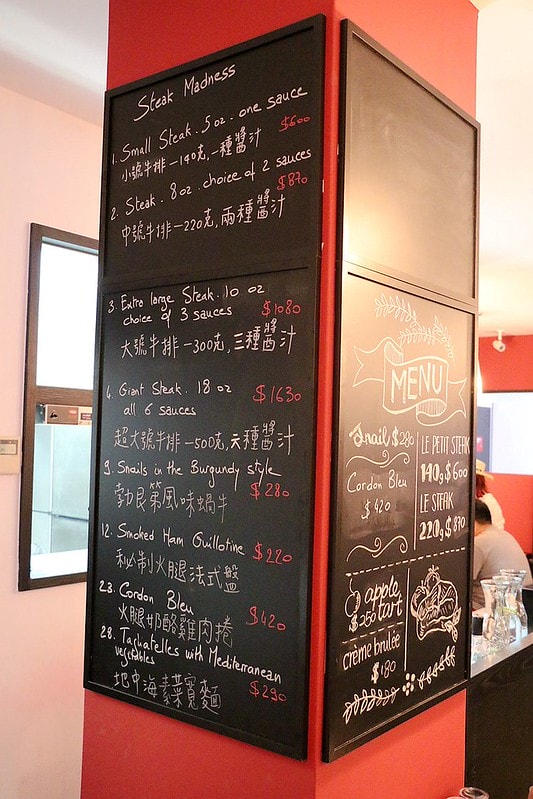 Steak Madness
1. Small Steak. 5 oz. one sauce
$600
小號牛排-140克,一種醬汁
2. Steak. 8 oz. choice of 2 sauces
$870
中號牛排-220克,兩種醬汁
3. Extra large Steak. 10 oz
choice of 3 sauces $1080
大號牛排-300克,三種醬汁
4. Giant Steak. 18 oz
all 6 sauces $1630
超大號牛排-500克,六種醬汁
9. Snails in the Burgundy style
$280
勃艮第風味蝸牛
12. Smoked Ham Guillotine
$220
私製火腿法式盤
23. Cordon Bleu
$420
火腿奶酪雞肉捲
28. Tagliatelles with Mediterranean
vegetables
$290
地中海素菜寬麵
MENU
Snail $280
Cordon Bleu
$420
LE PETIT STEAK
140g $600
LE STEAK
220g $870
apple
$250 tart
crème brulée
$180